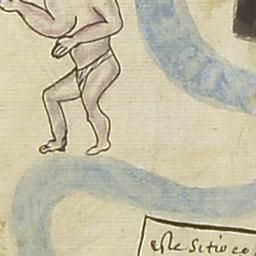 este sitio co